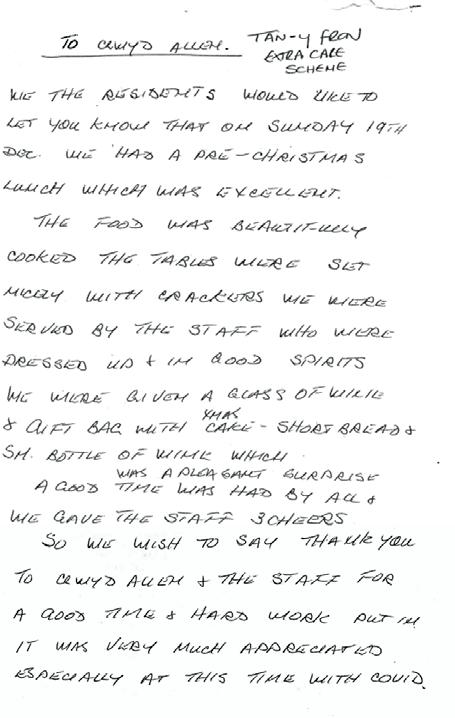 TO CLWYD ALLEN. TAN-Y FRON
EXTRA CARE
SCHEME
WE THE RESIDENTS WOULD LIKE TO
LET YOU KNOW THAT ON SUNDAY 19TH
DEC. WE HAD A PRE-CHRISTMAS
LUNCH WHICH WAS EXCELLENT.
THE FOOD WAS BEAUTIFULLY
COOKED THE TABLES WERE SET
NICELY WITH CRACKERS WE WERE
SERVED BY THE STAFF WHO WERE
DRESSED UP & IN GOOD SPIRITS
WE WERE GIVEN A GLASS OF WINE
& GIFT BAG WITH XMAS CAKE - SHORT BREAD &
SM. BOTTLE OF WINE WHICH
WAS A PLEASANT SURPRISE
A GOOD TIME WAS HAD BY ALL &
WE GAVE THE STAFF 3 CHEERS
SO WE WISH TO SAY THANK YOU
TO CLWYD ALLEN & THE STAFF FOR
A GOOD TIME & HARD WORK PUT IN
IT WAS VERY MUCH APPRECIATED
ESPECIALLY AT THIS TIME WITH COVID.